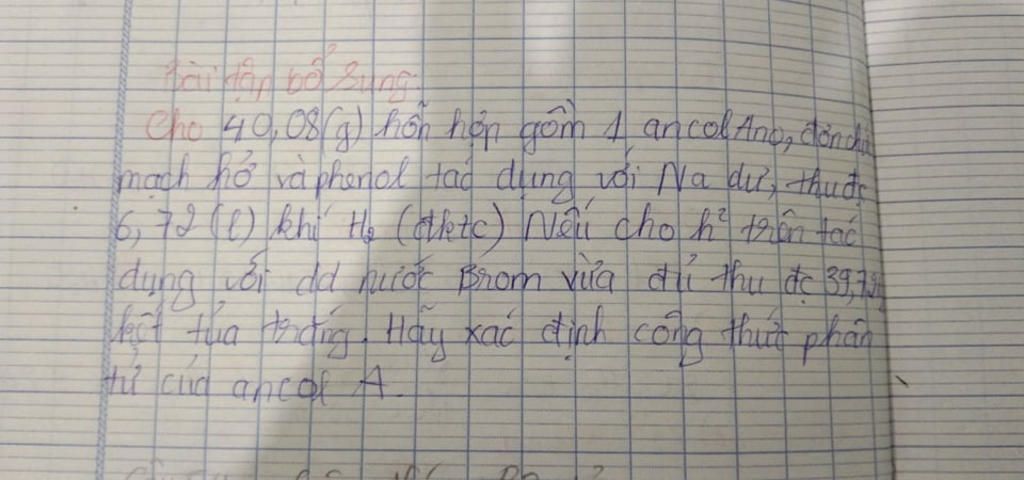 Bài tập bổ sung:
Cho 40,08(g) hỗn hợp gồm 1 ancol A no, đơn chứ
mạch hở và phenol tác dụng với Na dư, thu đc
6,72 (l) khí H₂ (đktc) Nếu cho h² trên tác
dụng với dd nước Brom vừa đủ thu đc 39,72g
kết tủa trắng. Hãy xác định công thức phân
tử của ancol A.